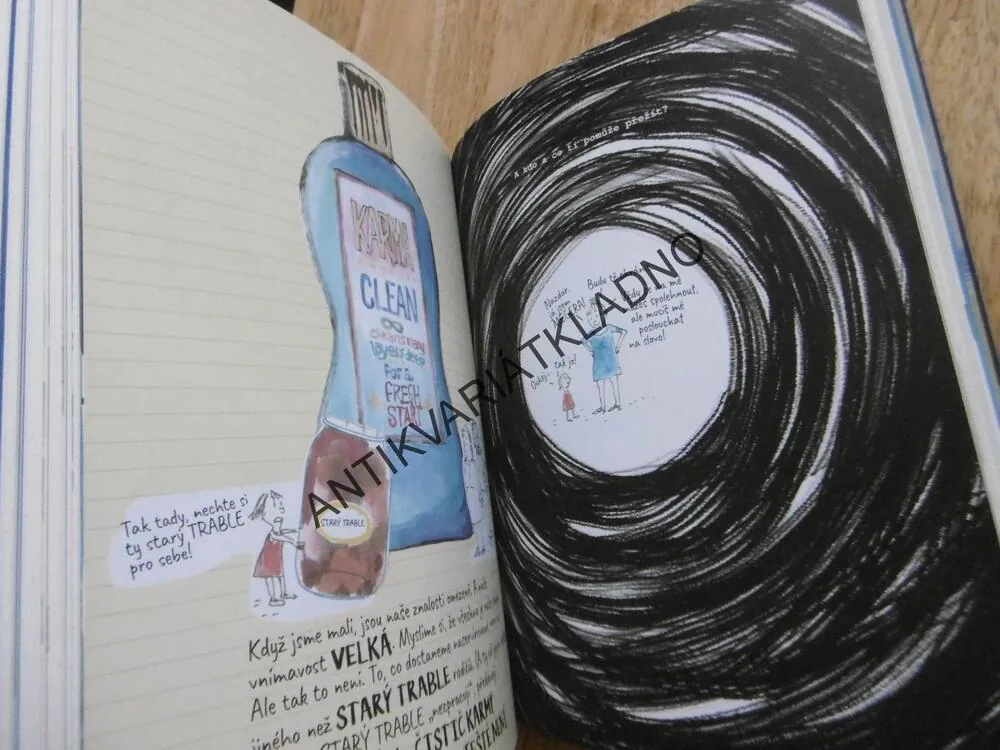 KARMA
CLEAN
cleans many
layers deep
for a
FRESH
START
STARÝ TRABLE
Tak tady, nechte si
ty starý TRABLE
pro sebe!
Když jsme malí, jsou naše znalosti omezené. A naše
vnímavost VELKÁ. Myslíme si, že všechno je naše
Ale tak to není. To, co dostaneme naservírované,
jiného než STARÝ TRABLE rodičů. (A ty
STARÝ TRABLE „nezpracují“, předávají
ČISTIČ KARMY
A kdo a co ti pomůže přežít?
Nazdar,
já jsem
Budu tě
na mě
spolehnout,
ale musíš mě
poslouchat
na slovo!
tak jo!
ANTIKVARIÁTKLADNO